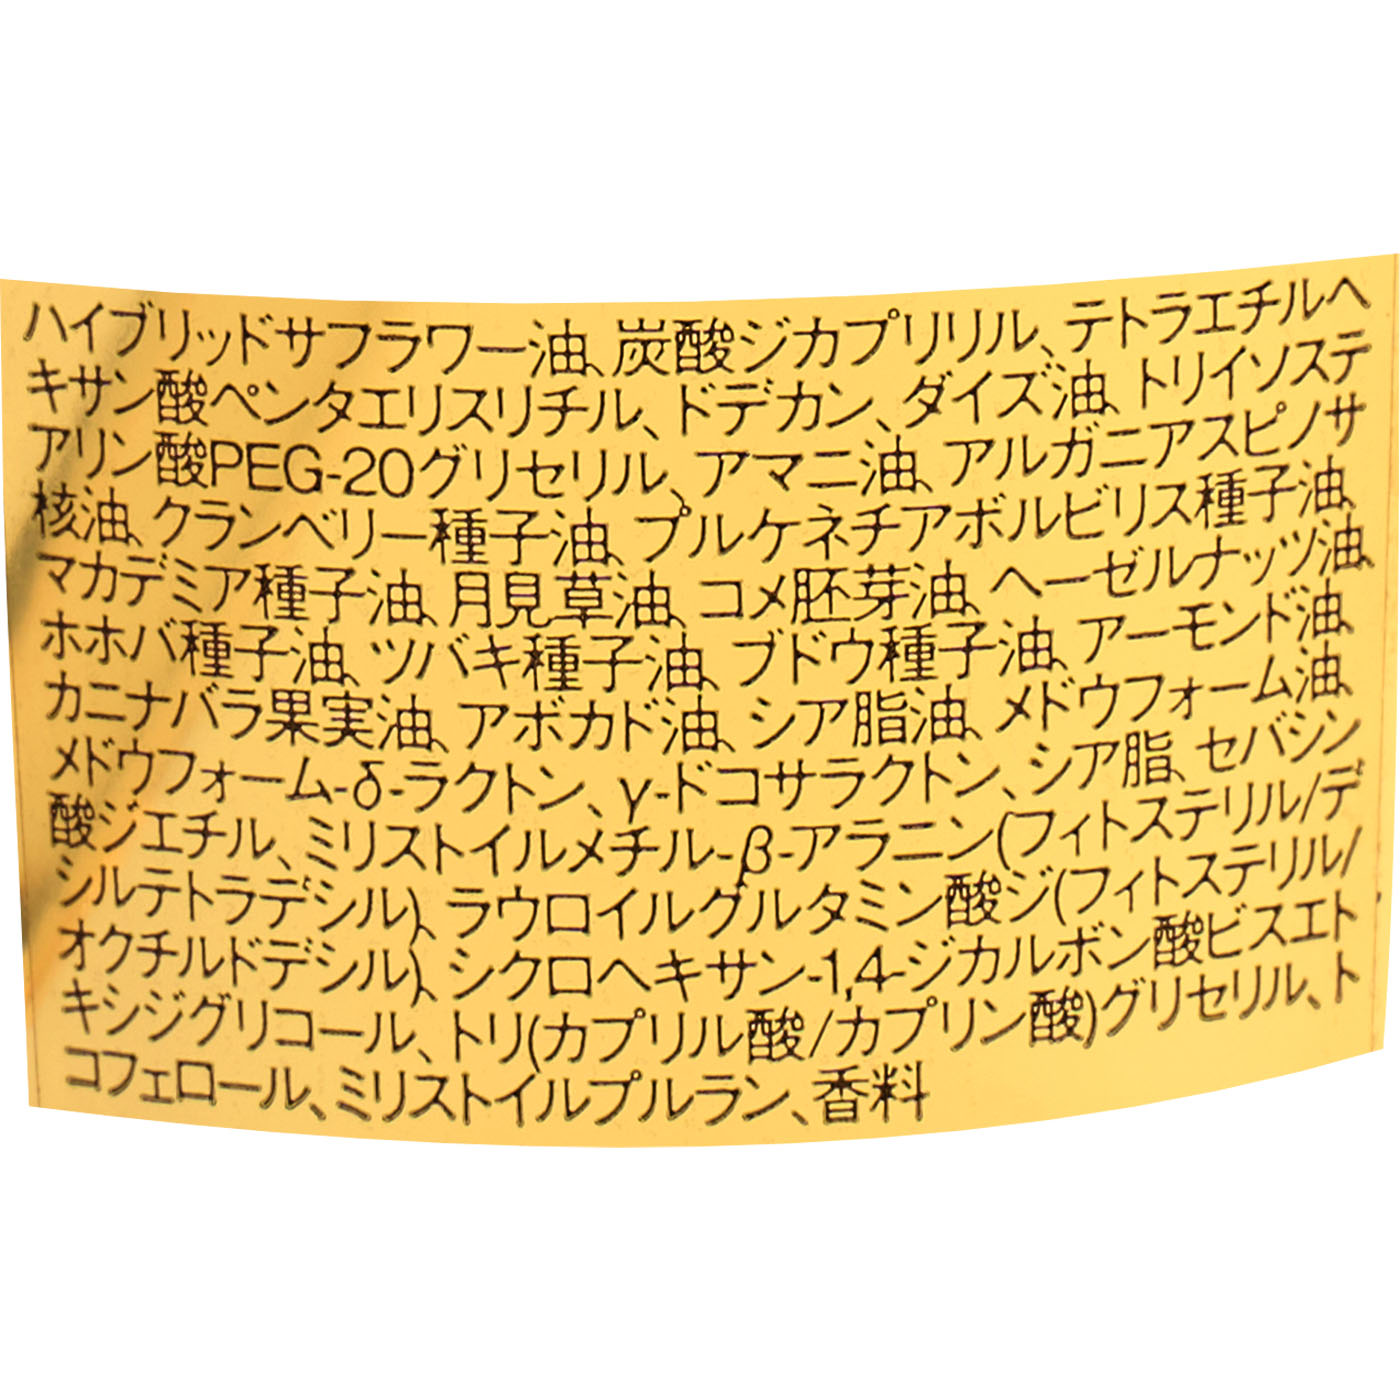 ハイブリッドサフラワー油、炭酸ジカプリリル、テトラエチルヘ
キサン酸ペンタエリスリチル、ドデカン、ダイズ油、トリイソステ
アリン酸PEG-20グリセリル、アマニ油、アルガニアスピノサ
核油、クランベリー種子油、プルケネチアボルビリス種子油、
マカデミア種子油、月見草油、コメ胚芽油、ヘーゼルナッツ油、
ホホバ種子油、ツバキ種子油、ブドウ種子油、アーモンド油、
カニナバラ果実油、アボカド油、シア脂油、メドウフォーム油、
メドウフォーム-δ-ラクトン、γ-ドコサラクトン、シア脂、セバシン
酸ジエチル、ミリストイルメチル-β-アラニン(フィトステリル/デ
シルテトラデシル)、ラウロイルグルタミン酸ジ(フィトステリル/
オクチルドデシル)、シクロヘキサン-1,4-ジカルボン酸ビスエト
キシジグリコール、トリ(カプリル酸/カプリン酸)グリセリル、ト
コフェロール、ミリストイルプルラン、香料